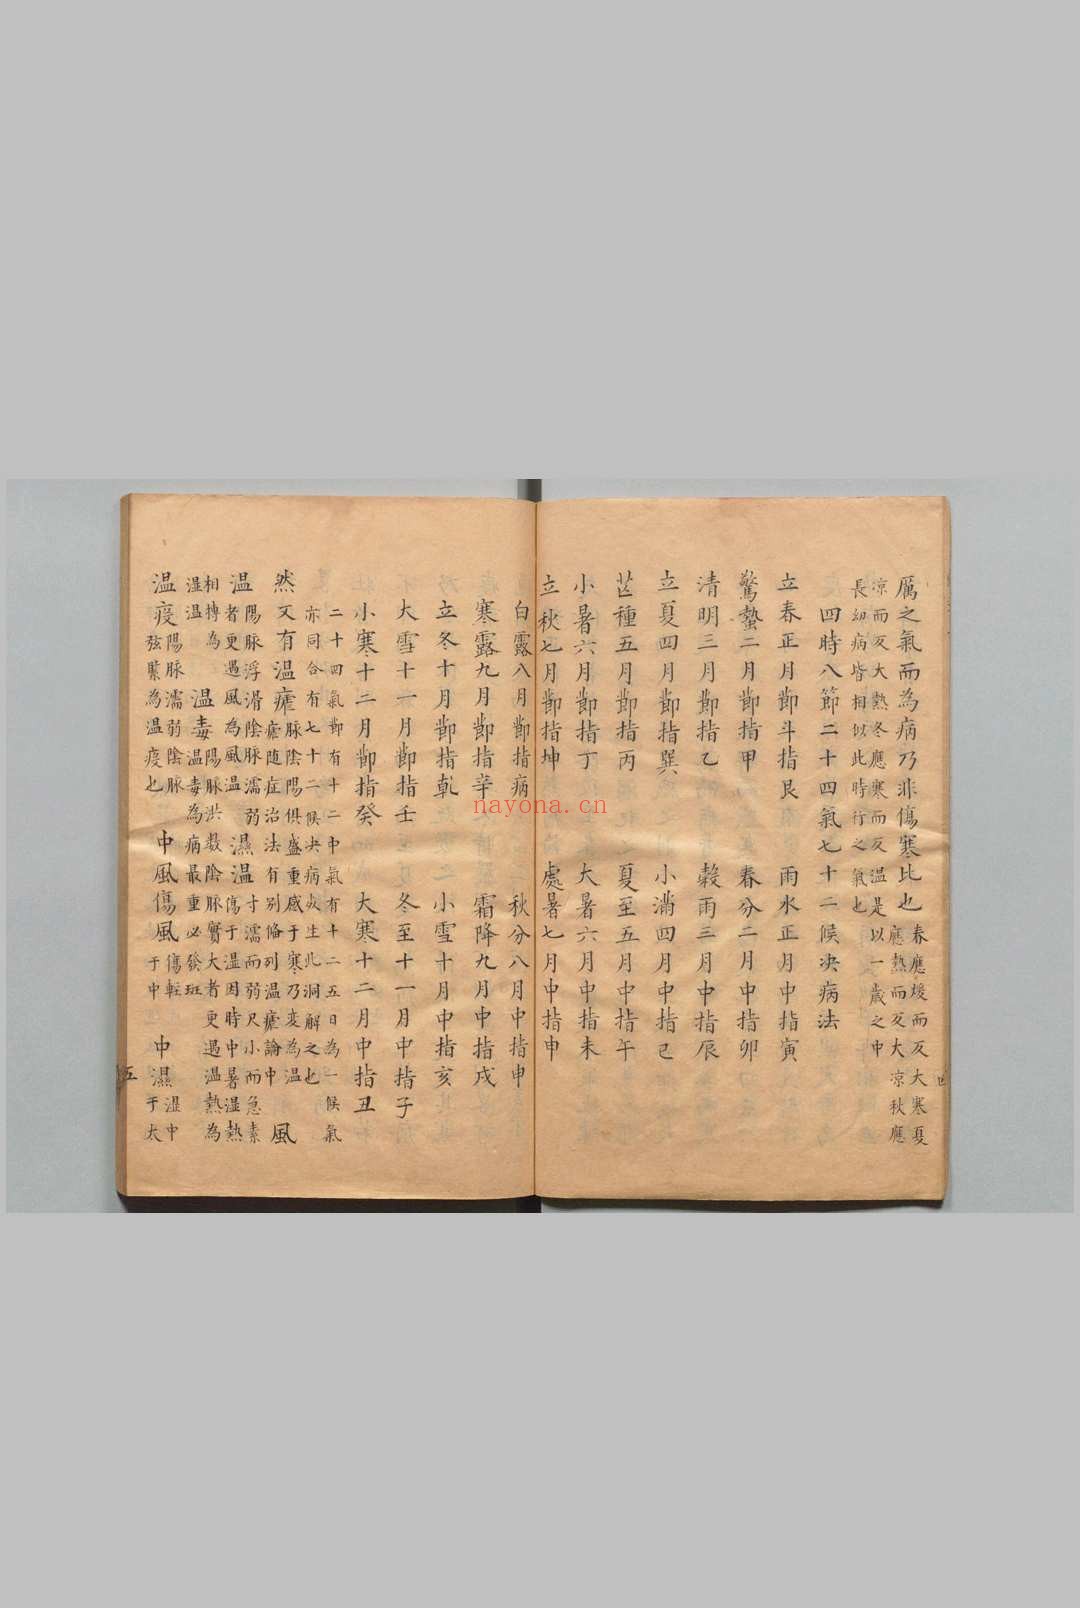 厲之氣而為病乃非傷寒比也春應煖而反大寒夏
應熱而反大凉秋應
凉而反大熱冬應寒而反温是以一歲之中
長幼病皆相似此時行之氣也
四時八節二十四氣七十二候决病法
立春正月節斗指艮 雨水正月中指寅
驚蟄二月節指甲 春分二月中指卯
清明三月節指乙 穀雨三月中指辰
立夏四月節指巽 小滿四月中指巳
芒種五月節指丙 夏至五月中指午
小暑六月節指丁 大暑六月中指未
立秋七月節指坤 處暑七月中指申
四
白露八月節指病 秋分八月中指申
寒露九月節指辛 霜降九月中指戌
立冬十月節指乾 小雪十月中指亥
大雪十一月節指壬 冬至十一月中指子
小寒十二月節指癸 大寒十二月中指丑
二十四氣節有十二中氣有十二五日為一候氣
亦同合有七十二候决病次生此洞解之也
然又有温瘧脉陰陽俱盛重感于寒乃変為温
瘧随症治法有别條列温瘧論中 風
温陽脉浮滑陰脉濡弱
者更遇風為風温 濕温寸濡而弱尺小而急素
傷于温因時中暑湿熱
相搏為
湿温 温毒陽脉洪数陰脉實大者更遇温熱為
温毒為病最重必發斑
温疫陽脉濡弱陰脉
弦緊為温疫也 中風傷風傷輕
于中 中濕湿中
于太
五
nayona.cn